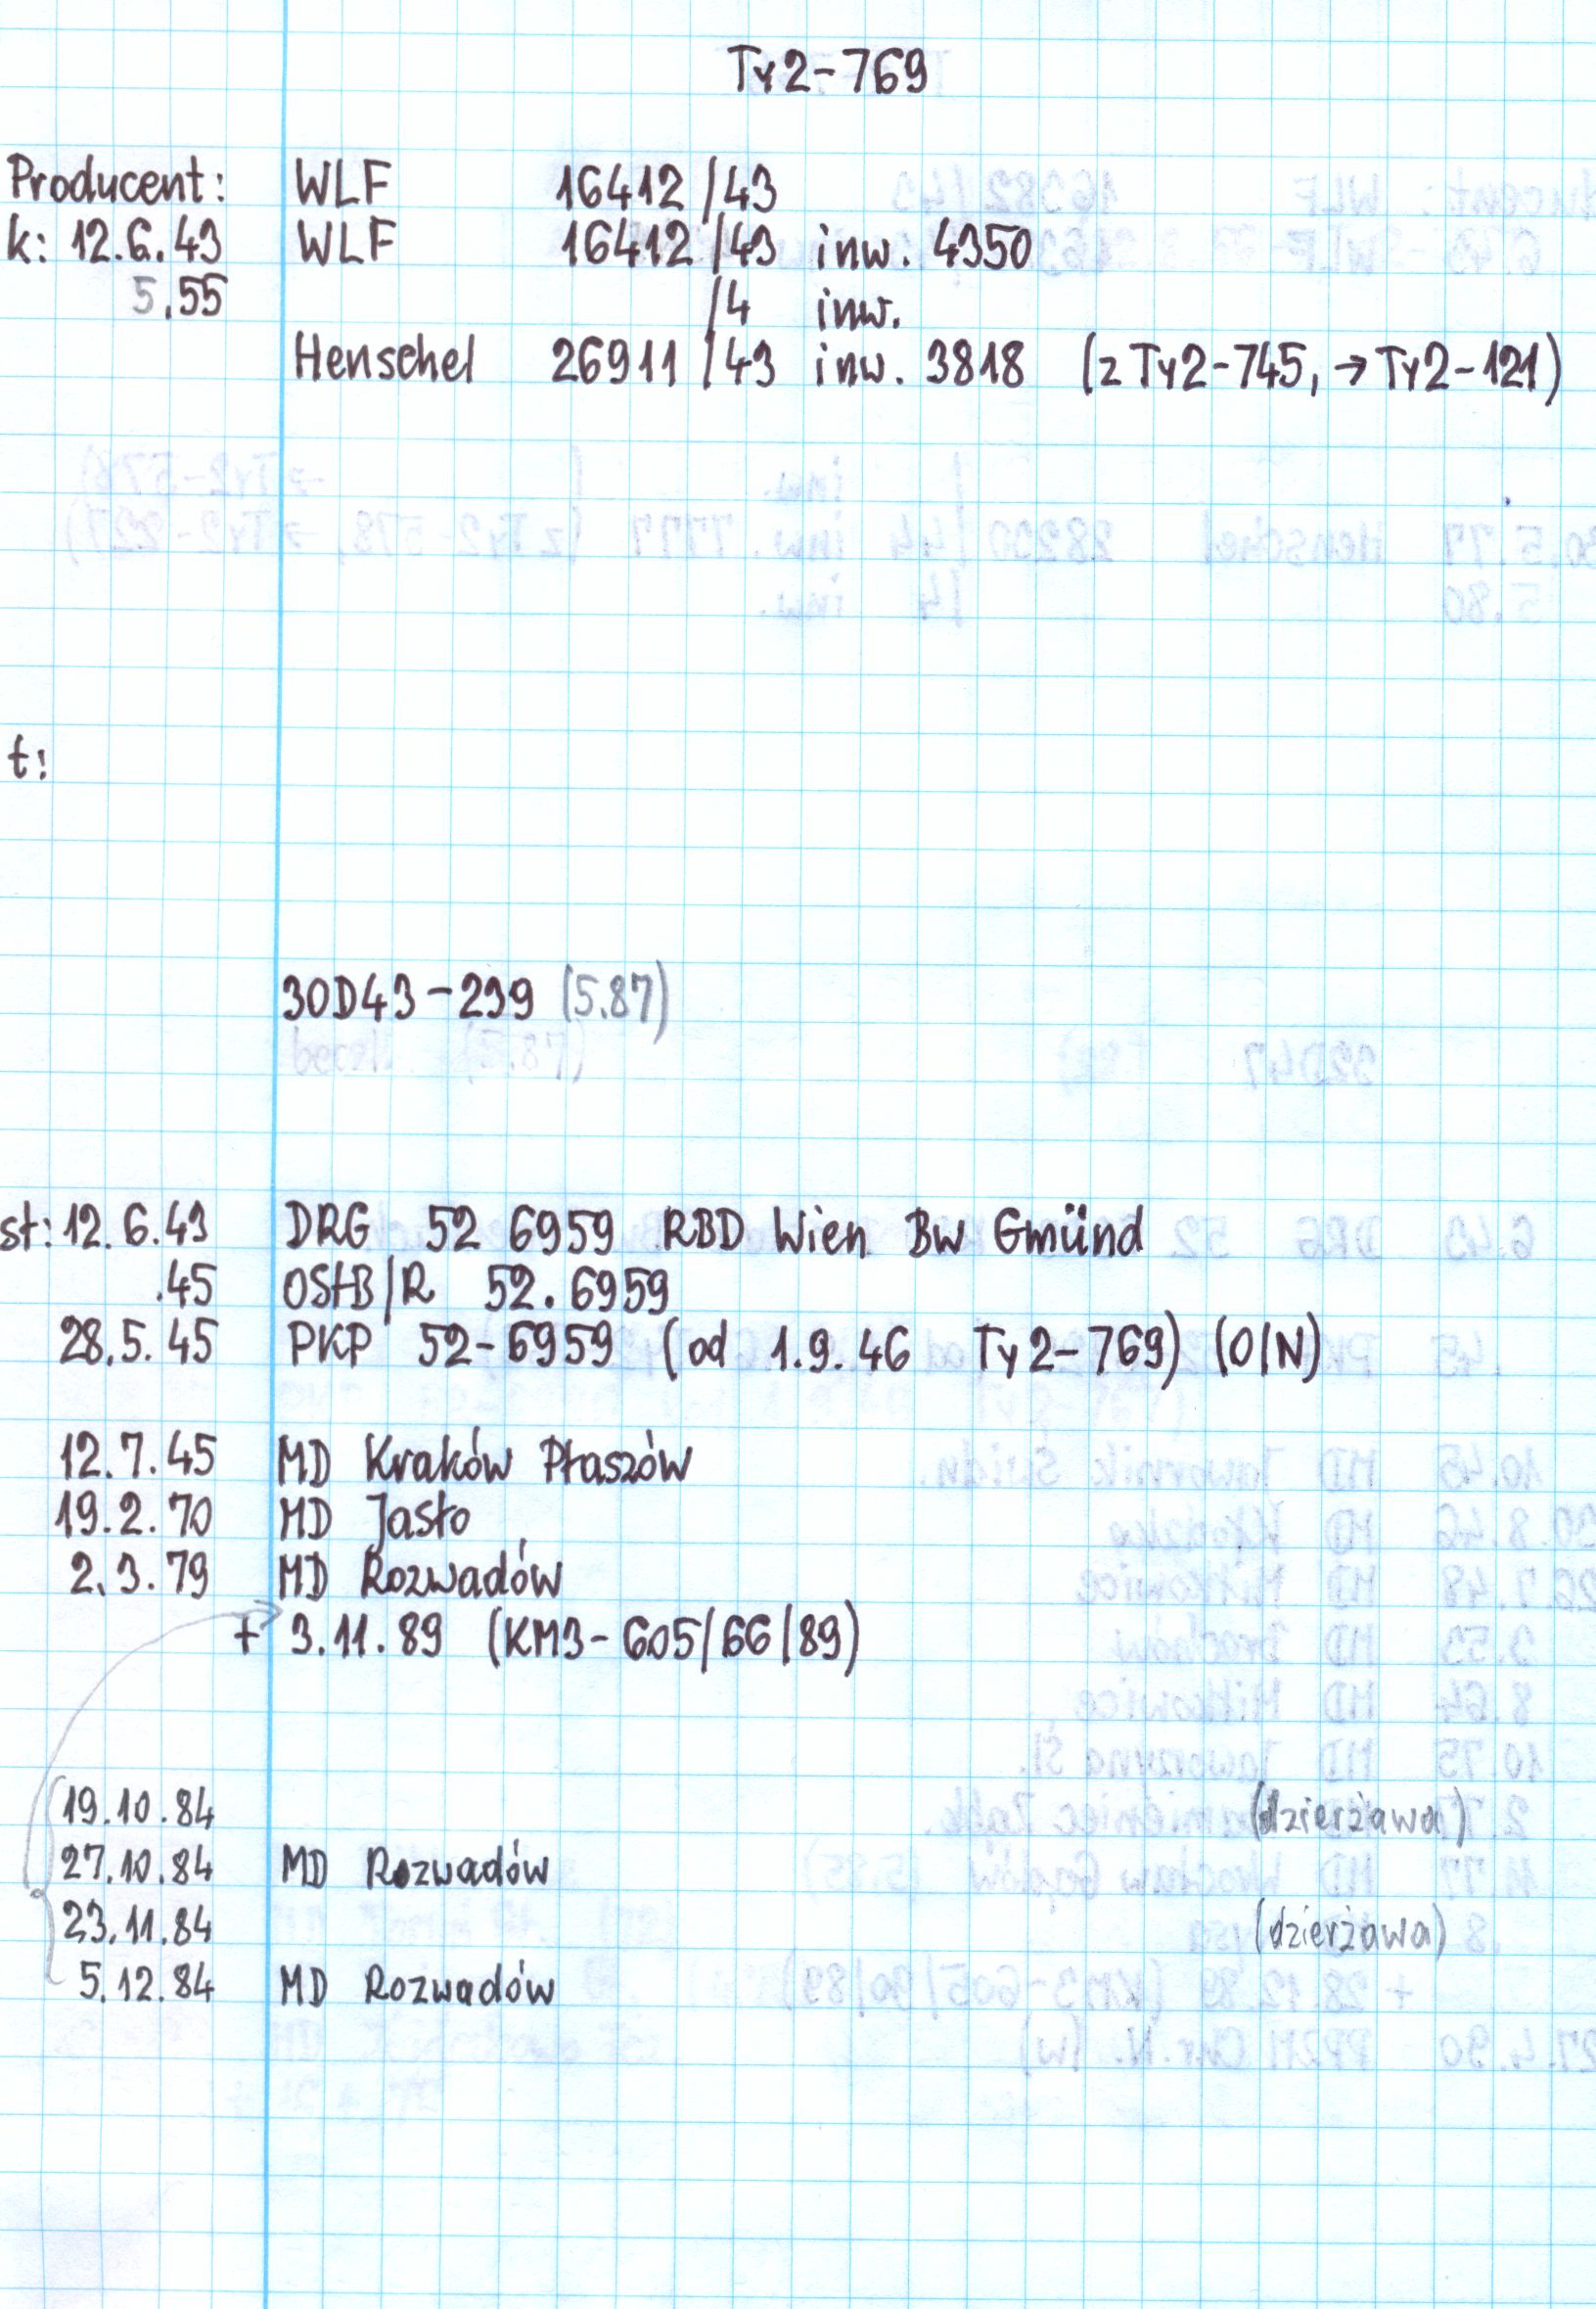 Ty2-769
Producent: WLF 16412/43
k: 12.6.43 WLF 16412/43 inw. 4350
5.55 /4 inw.
Henschel 26911/43 inw. 3818 (z Ty2-745, → Ty2-121)
t:
30D43-239 (5.87)
st: 12.6.43 DRG 52 6959 RBD Wien Bw Gmünd
.45 OStB/R 52.6959
28.5.45 PKP 52-6959 (od 1.9.46 Ty2-769) (O/N)
12.7.45 MD Kraków Płaszów
19.2.70 MD Jasło
2.3.79 MD Rozwadów
+ 3.11.89 (KM3-605/66/89)
19.10.84 (dzierżawa)
27.10.84 MD Rozwadów
23.11.84 (dzierżawa)
5.12.84 MD Rozwadów